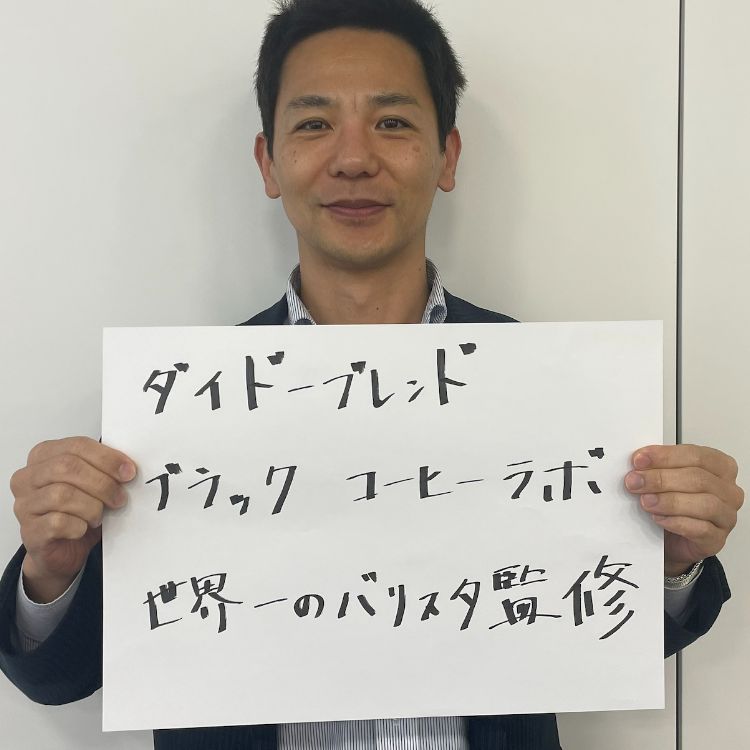 ダイドーブレンド
ブラック コーヒーラボ
世界一のバリスタ監修